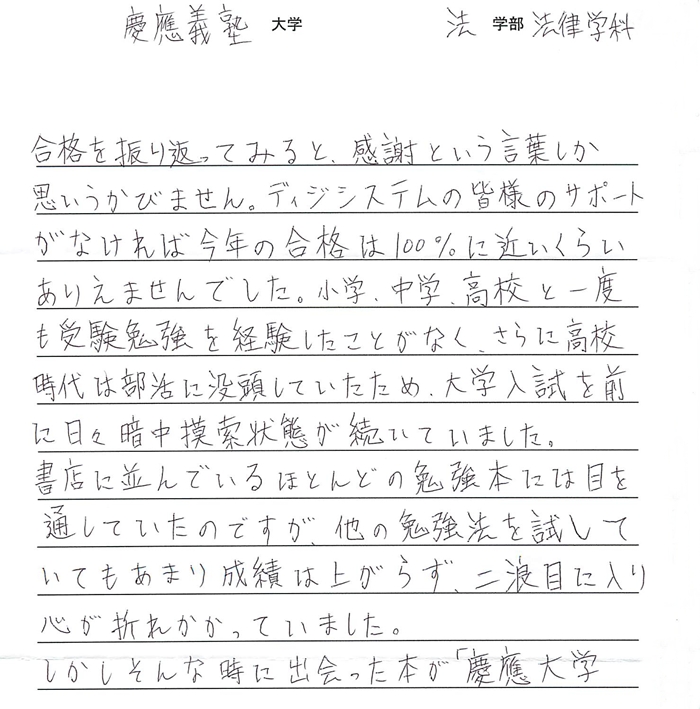 慶應義塾 大学 法 学部 法律学科
合格を振り返ってみると、感謝という言葉しか
思いうかびません。ディジシステムの皆様のサポート
がなければ今年の合格は100%に近いくらい
ありえませんでした。小学、中学、高校と一度
も受験勉強を経験したことがなく、さらに高校
時代は部活に没頭していたため、大学入試を前
に日々暗中摸索状態が続いていました。
書店に並んでいるほとんどの勉強本には目を
通していたのですが、他の勉強法を試して
いてもあまり成績は上がらず、二浪目に入り
心が折れかかっていました。
しかしそんな時に出会った本が「慶應大学